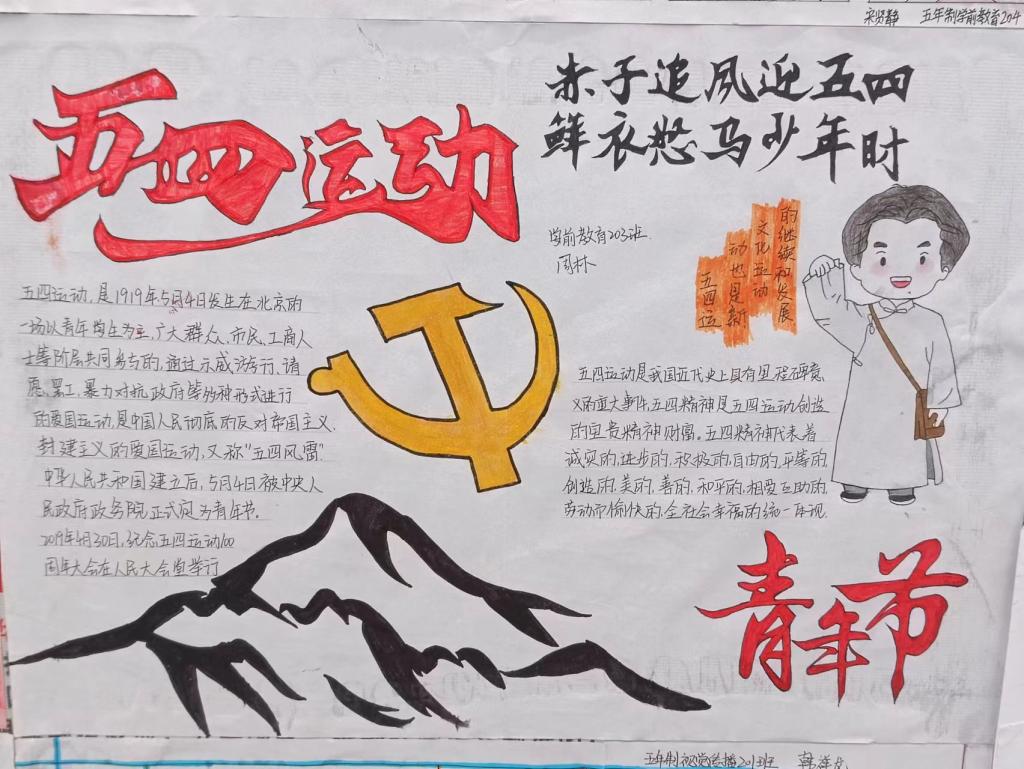 宋贤静 五年制学前教育204
五四运动
赤子追夙迎五四
鲜衣愁马少年时
学前教育203班
周林
五四运
动也是新
文化运动
的继续和发展
五四运动,是1919年5月4日发生在北京的
一场以青年学生为主,广大群众、市民、工商人
士等阶层共同参与的,通过示威游行、请
愿、罢工、暴力对抗政府等多种形式进行
的爱国运动,是中国人民彻底的反对帝国主义、
封建主义的爱国运动,又称"五四风雷"
中华人民共和国建立后,5月4日被中央人
民政府政务院正式定为青年节。
2019年4月30日,纪念五四运动100
周年大会在人民大会堂举行
五四运动是我国近代史上具有里程碑意
义的重大事件,五四精神是五四运动创造
的宝贵精神财富。五四精神代表着
诚实的,进步的,积极的,自由的,平等的,
创造的,美的,善的,和平的,相爱互助的,
劳动而愉快的,全社会幸福的统一体现
青年节
五年制视觉传播201班